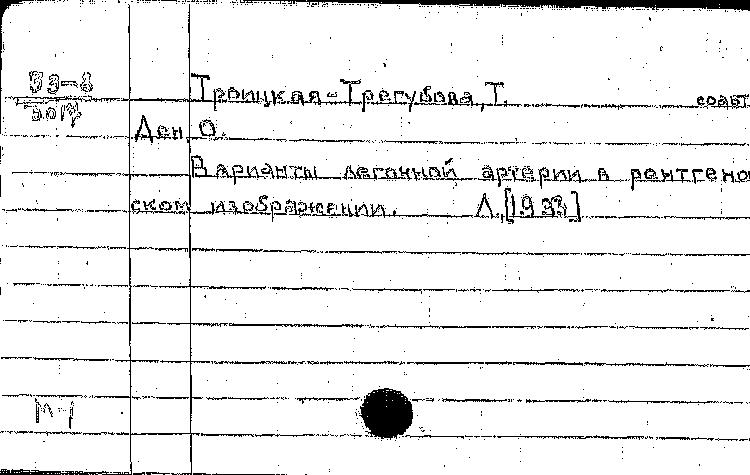 33-8
2017
Троицкая-Трегубова, Т. соавт
Ден, О.
Варианты легочной артерии в рентгено
ском изображении. Л., [1933]
М-1